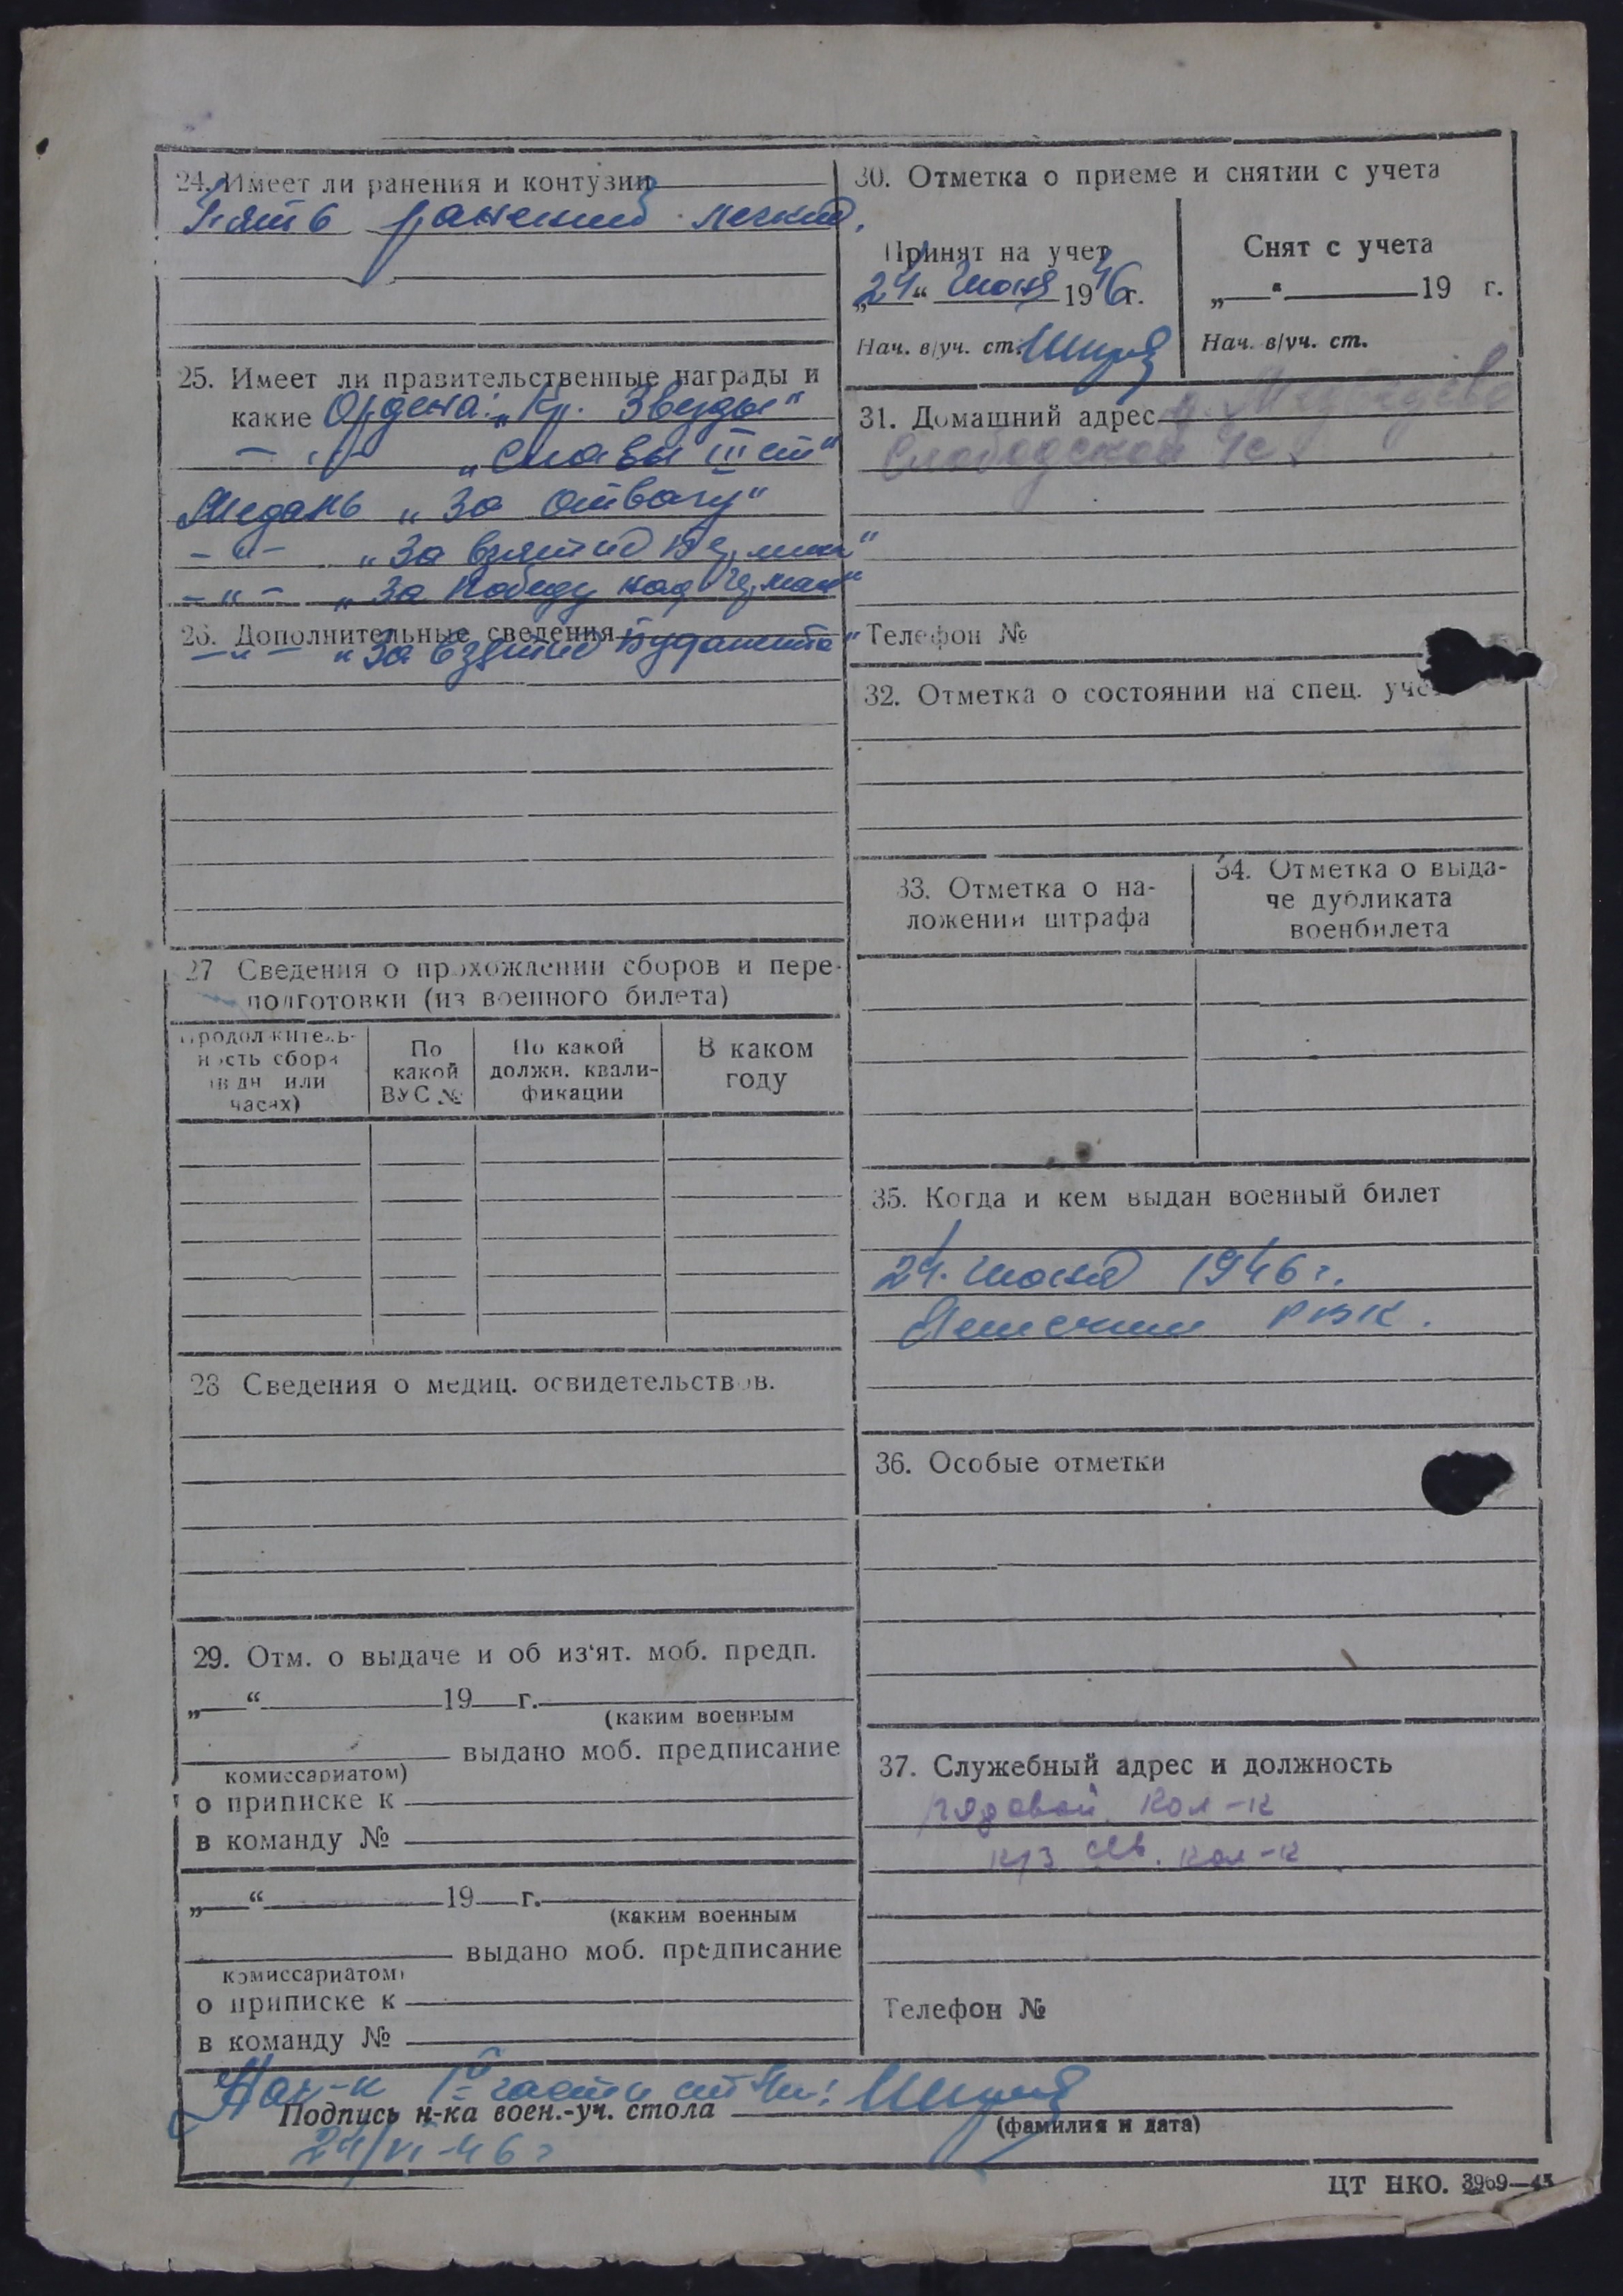 24. Имеет ли ранения и контузии
Пять ранений легких.
25. Имеет ли правительственные награды и
какие Ордена: „Кр. Звезды“
— „ — „Славы III ст“
Медаль „За отвагу“
— „ — „За взятие Берлина“
— „ — „За победу над Герман“
26. Дополнительные сведения
— „ — „За взятие Будапешта“
27 Сведения о прохождении сборов и пере-
подготовки (из военного билета)
Продолжитель-
ность сбора
(в дн. или
часах)
По
какой
ВУС №
По какой
должн. квали-
фикации
В каком
году
28 Сведения о медиц. освидетельствов.
29. Отм. о выдаче и об из'ят. моб. предп.
„ “ 19 г.
(каким военным
выдано моб. предписание
комиссариатом)
о приписке к
в команду №
„ “ 19 г.
(каким военным
выдано моб. предписание
комиссариатом)
о приписке к
в команду №
30. Отметка о приеме и снятии с учета
Принят на учет
„24“ июня 1946 г.
Нач. в/уч. ст.
Снят с учета
„ “ 19 г.
Нач. в/уч. ст.
31. Домашний адрес д. Медведево
Слободской с/с
Телефон №
32. Отметка о состоянии на спец. уче
33. Отметка о на-
ложении штрафа
34. Отметка о выда-
че дубликата
военбилета
35. Когда и кем выдан военный билет
24. июня 1946 г.
РВК.
36. Особые отметки
37. Служебный адрес и должность
рядовой кол-к
к/з св. кол-к
Телефон №
Нач-к 1й части ст
Подпись н-ка воен.-уч. стола
(фамилия и дата)
24/VI-46 г
ЦТ НКО. 3969—45